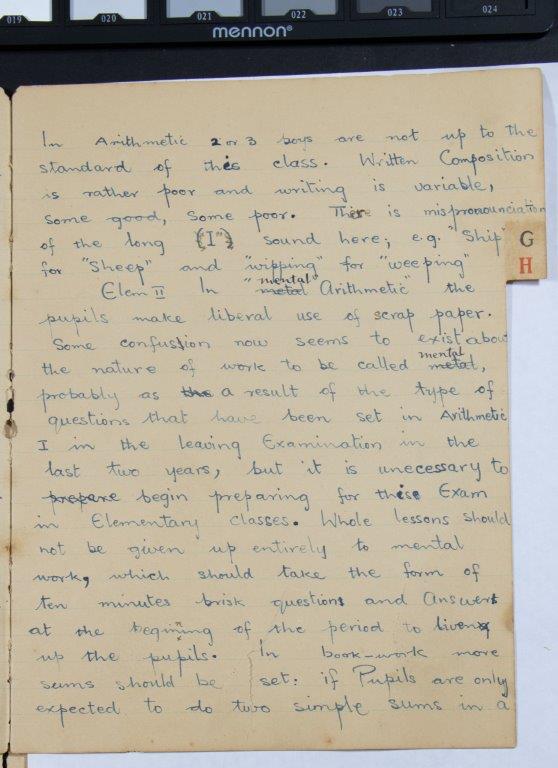 019 020 021 022 023 024
mennon®
In Arithmetic 2 or 3 boys are not up to the
standard of this class. Written Composition
is rather poor and writing is variable,
some good, some poor. There is mispronounciation
of the long ("I") sound here; e.g. "Ship"
for "Sheep" and "wipping" for "weeping"
G
H
Elem II In "metal mental" Arithmetic the
pupils make liberal use of scrap paper.
Some confusion now seems to exist about
the nature of work to be called metal mental,
probably as the a result of the type of
questions that have been set in Arithmetic
I in the leaving Examination in the
last two years, but it is unecessary to
prepare begin preparing for this Exam
in Elementary classes. Whole lessons should
not be given up entirely to mental
work, which should take the form of
ten minutes brisk questions and Answers
at the beginning of the period to liven
up the pupils. In book-work more
sums should be set: if Pupils are only
expected to do two simple sums in a